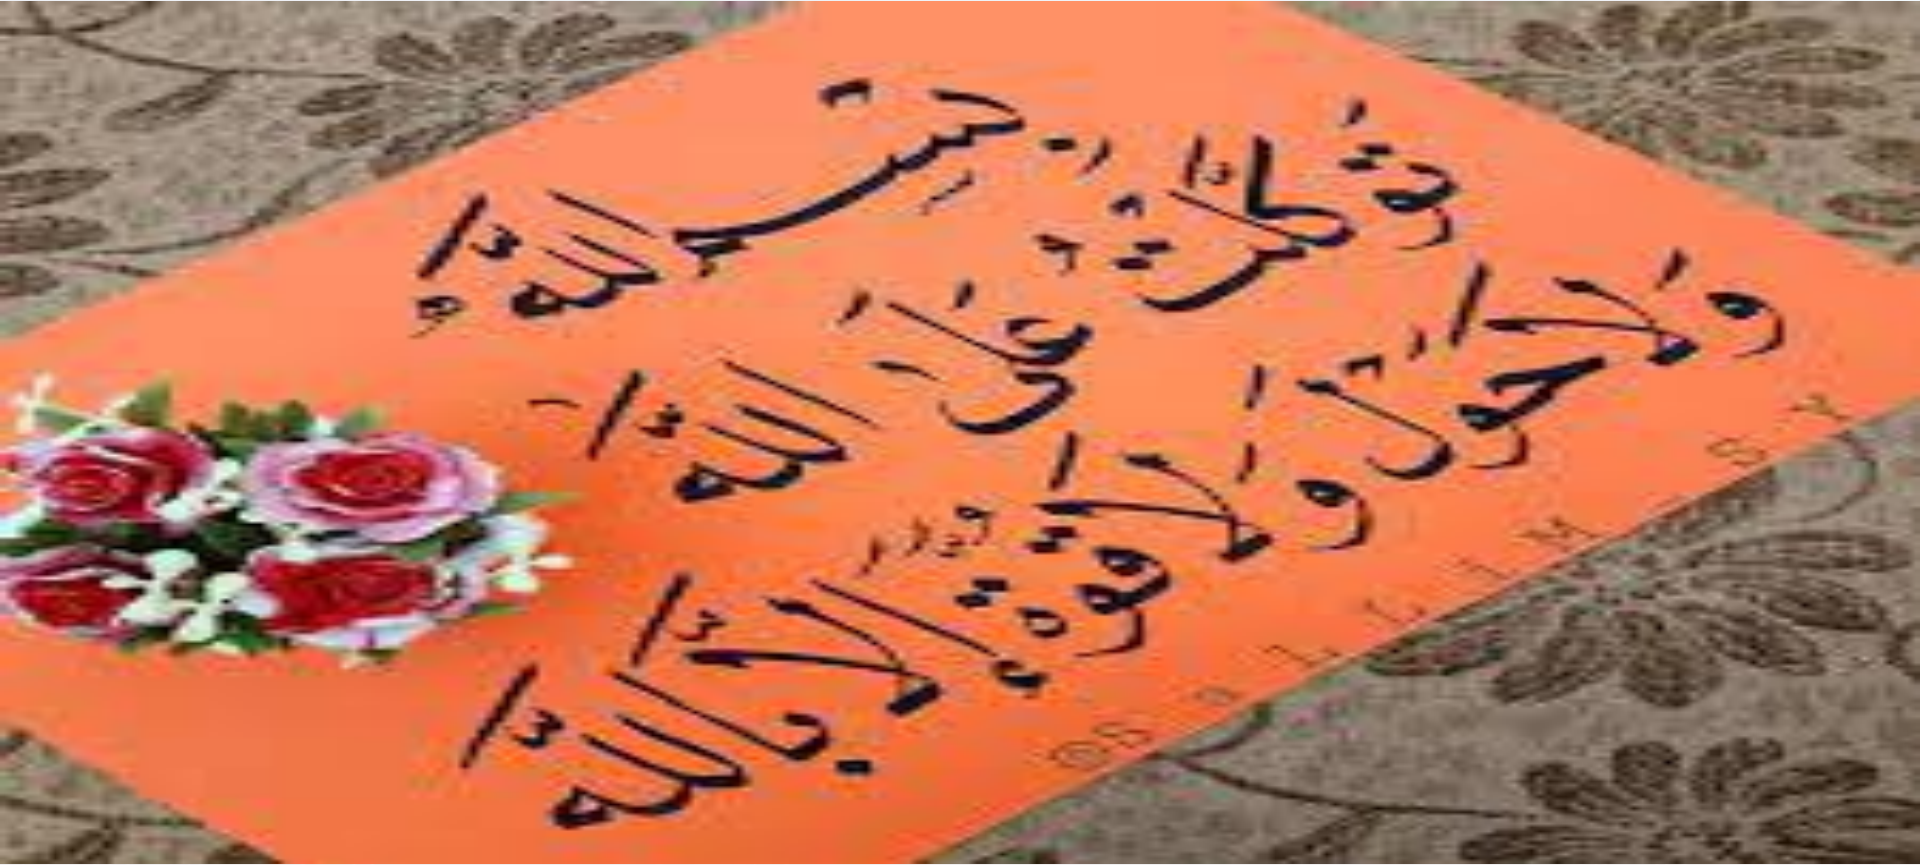 بِسْمِ اللّٰهِ
تَوَكَّلْتُ عَلَى اللّٰهِ
وَلَا حَوْلَ وَلَا قُوَّةَ
إِلَّا بِاللّٰه